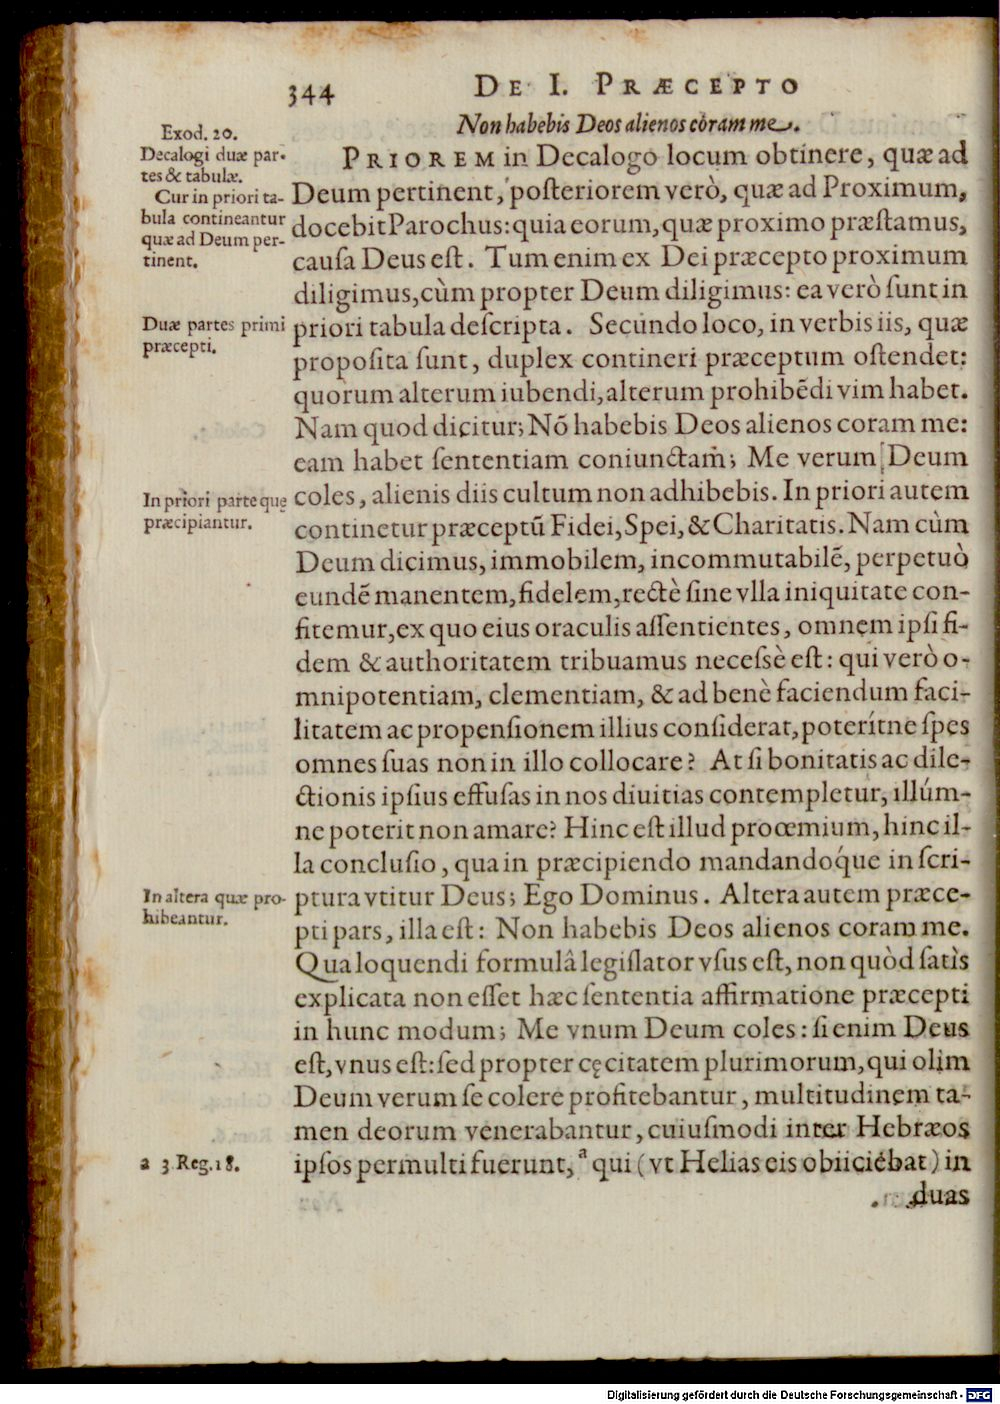 344
DE I. PRÆCEPTO
Non habebis Deos alienos coram me.
Exod. 20.
Decalogi duæ par-
tes & tabulæ.
Cur in priori ta-
bula contineantur
quæ ad Deum per-
tinent.
Duæ partes primi
præcepti.
In priori parte quę
præcipiantur.
In altera quæ pro-
hibeantur.
a 3 Reg. 18.
PRIOREM in Decalogo locum obtinere, quæ ad
Deum pertinent, posteriorem verò, quæ ad Proximum,
docebit Parochus: quia eorum, quæ proximo præstamus,
causa Deus est. Tum enim ex Dei præcepto proximum
diligimus, cùm propter Deum diligimus: ea verò sunt in
priori tabula descripta. Secundo loco, in verbis iis, quæ
proposita sunt, duplex contineri præceptum ostendet:
quorum alterum iubendi, alterum prohibẽdi vim habet.
Nam quod dicitur; Nõ habebis Deos alienos coram me:
eam habet sententiam coniunctam; Me verum Deum
coles, alienis diis cultum non adhibebis. In priori autem
continetur præceptũ Fidei, Spei, & Charitatis. Nam cùm
Deum dicimus, immobilem, incommutabilẽ, perpetuò
eundẽ manentem, fidelem, rectè sine vlla iniquitate con-
fitemur, ex quo eius oraculis assentientes, omnem ipsi fi-
dem & authoritatem tribuamus necessè est: qui verò o-
mnipotentiam, clementiam, & ad benè faciendum faci-
litatem ac propensionem illius considerat, poterítne spes
omnes suas non in illo collocare? At si bonitatis ac dile-
ctionis ipsius effusas in nos diuitias contempletur, illúm-
ne poterit non amare? Hinc est illud proœmium, hinc il-
la conclusio, qua in præcipiendo mandandoq́ue in scri-
ptura vtitur Deus; Ego Dominus. Altera autem præce-
pti pars, illa est: Non habebis Deos alienos coram me.
Qua loquendi formulâ legislator vsus est, non quòd satìs
explicata non esset hæc sententia affirmatione præcepti
in hunc modum; Me vnum Deum coles: si enim Deus
est, vnus est: sed propter cęcitatem plurimorum, qui olim
Deum verum se colere profitebantur, multitudinem ta-
men deorum venerabantur, cuiusmodi inter Hebræos
ipsos permulti fuerunt, ª qui (vt Helias eis obiiciébat) in
duas
Digitalisierung gefördert durch die Deutsche Forschungsgemeinschaft - DFG